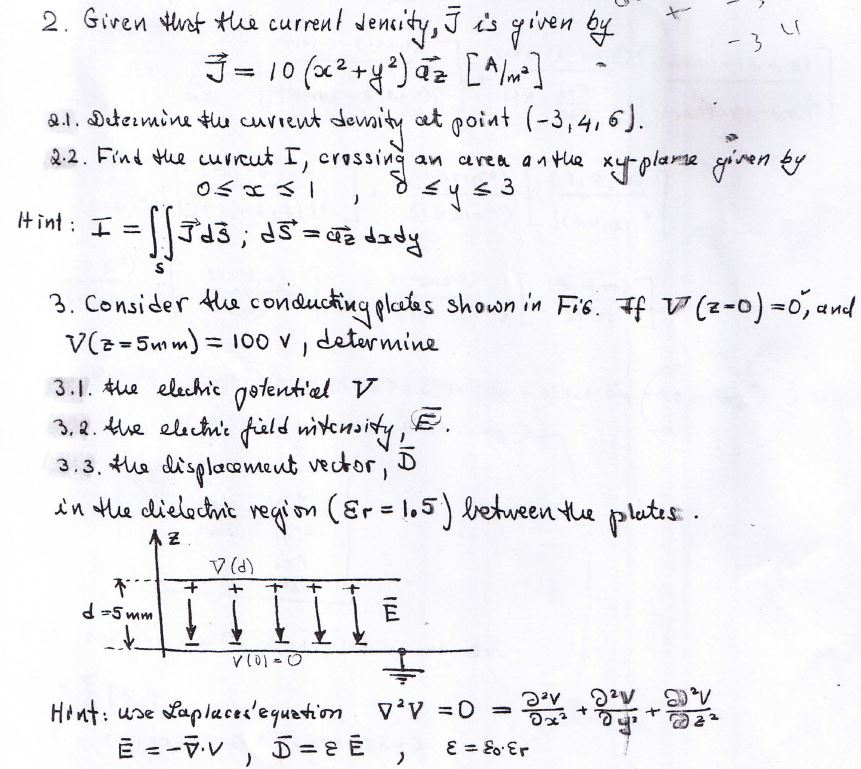 2. Given that the current density, J̄ is given by
J⃗ = 10 (x² + y²) a⃗z [A/m²]
2.1. Determine the current density at point (-3, 4, 6).
2.2. Find the current I, crossing an area on the xy-plane given by
0 ≤ x ≤ 1 , 0 ≤ y ≤ 3
Hint: I = ∬ J⃗ dS⃗ ; dS⃗ = a⃗z dxdy
S
3. Consider the conducting plates shown in FIG. If V (z=0) = 0, and
V(z = 5mm) = 100 V, determine
3.1. the electric potential V
3.2. the electric field intensity, Ē.
3.3. the displacement vector, D̄
in the dielectric region (εr = 1.5) between the plates.
z
V(d)
+ + + + +
d = 5 mm
Ē
V(0) = 0
Hint: use Laplaces' equation ∇²V = 0 = ∂²V/∂x² + ∂²V/∂y² + ∂²V/∂z²
Ē = -∇̄·V , D̄ = ε Ē , ε = ε₀·εr